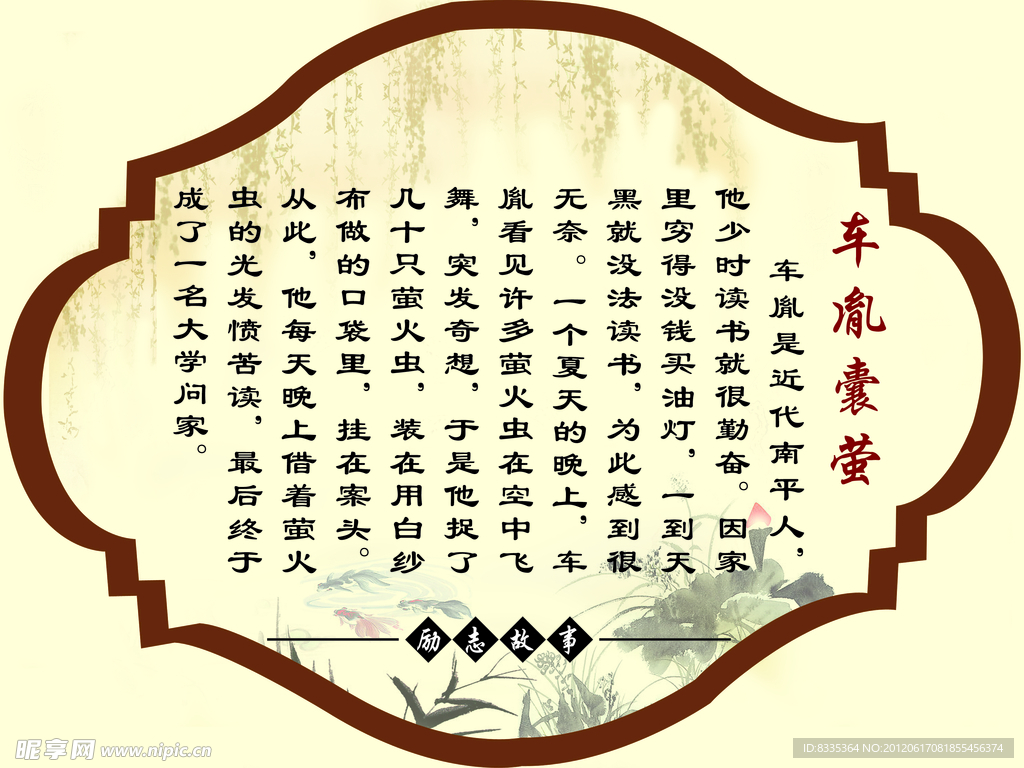 车胤囊萤
车胤是近代南平人，
他少时读书就很勤奋。因家
里穷得没钱买油灯，一到天
黑就没法读书，为此感到很
无奈。一个夏天的晚上，车
胤看见许多萤火虫在空中飞
舞，突发奇想，于是他捉了
几十只萤火虫，装在用白纱
布做的口袋里，挂在案头。
从此，他每天晚上借着萤火
虫的光发愤苦读，最后终于
成了一名大学问家。
励志故事
昵享网 www.nipic.cn
ID:8335364 NO:20120617081855456374